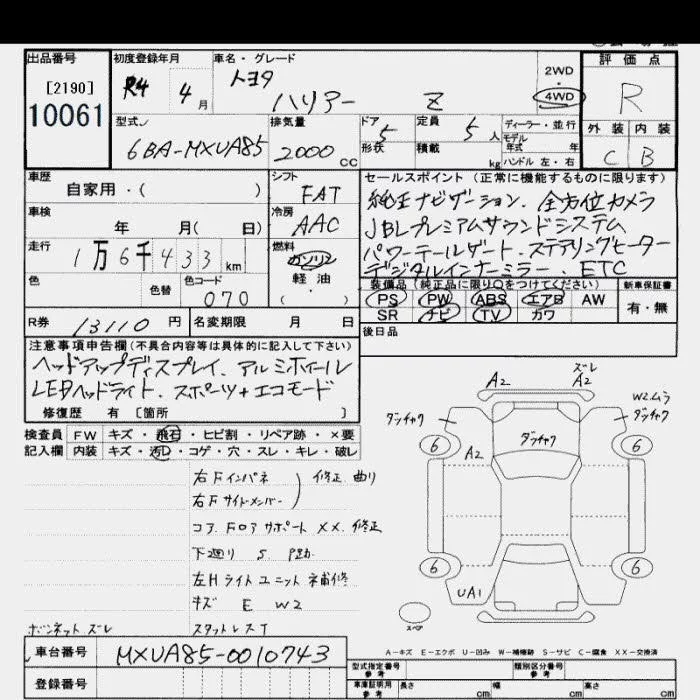 出品番号
[2190]
10061
初度登録年月
R4 4月
車名・グレード
トヨタ
ハリアー Z
2WD
・
4WD
評価点
R
外装 内装
C B
型式
6BA-MXUA85
排気量
2000 cc
ドア 5
形状
定員 5 人
積載 kg
ディーラー・並行
モデル
年式 年
ハンドル 左・右
車歴
自家用・( )
シフト
FAT
車検
年 月( 日)
冷房
AAC
走行
1万6千433 km
燃料
ガソリン
軽油
( ・ )
色
色替
色コード
070
R券 13110 円
名変期限 月 日
セールスポイント(正常に機能するものに限ります)
純正ナビゲーション、全方位カメラ
JBLプレミアムサウンドシステム
パワーテールゲート、ステアリングヒーター
デジタルインナーミラー、ETC
装備品(純正品に限り○をつけてください)
PS PW ABS エアB AW
SR ナビ TV カワ
新車保証書
有・無
後日品
注意事項申告欄(不具合内容等は具体的に記入して下さい)
ヘッドアップディスプレイ、アルミホイール
LEDヘッドライト、スポーツ+エコモード
修復歴 有 [箇所 ]
検査員
記入欄
FW キズ・飛石・ヒビ割・リペア跡・×要
内装 キズ・汚レ・コゲ・穴・スレ・キレ・破レ
右Fインパネ
右Fサイドメンバー
修正 曲り
コア、Fロアサポート XX、修正
下廻り S
左Hライトユニット補修
キズ E W2
ボンネットズレ
スタットレスT
A2
ズレ
A2
W2ムラ
ダッチャク
ダッチャク
ダッチャク
6
6
A2
6
6
UA1
スペア
A－キズ E－エクボ U－凹み W－補修跡 S－サビ C－腐食 XX－交換済
車台番号 MXUA85-0010743
登録番号
型式指定番号
参考
類別区分番号
参考
車庫証明用
参考
長さ cm
幅 cm
高さ cm